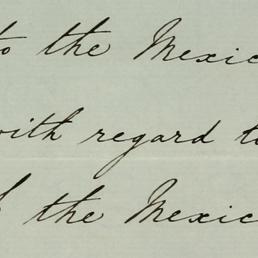 to the Mexic
with regard to
of the Mexic